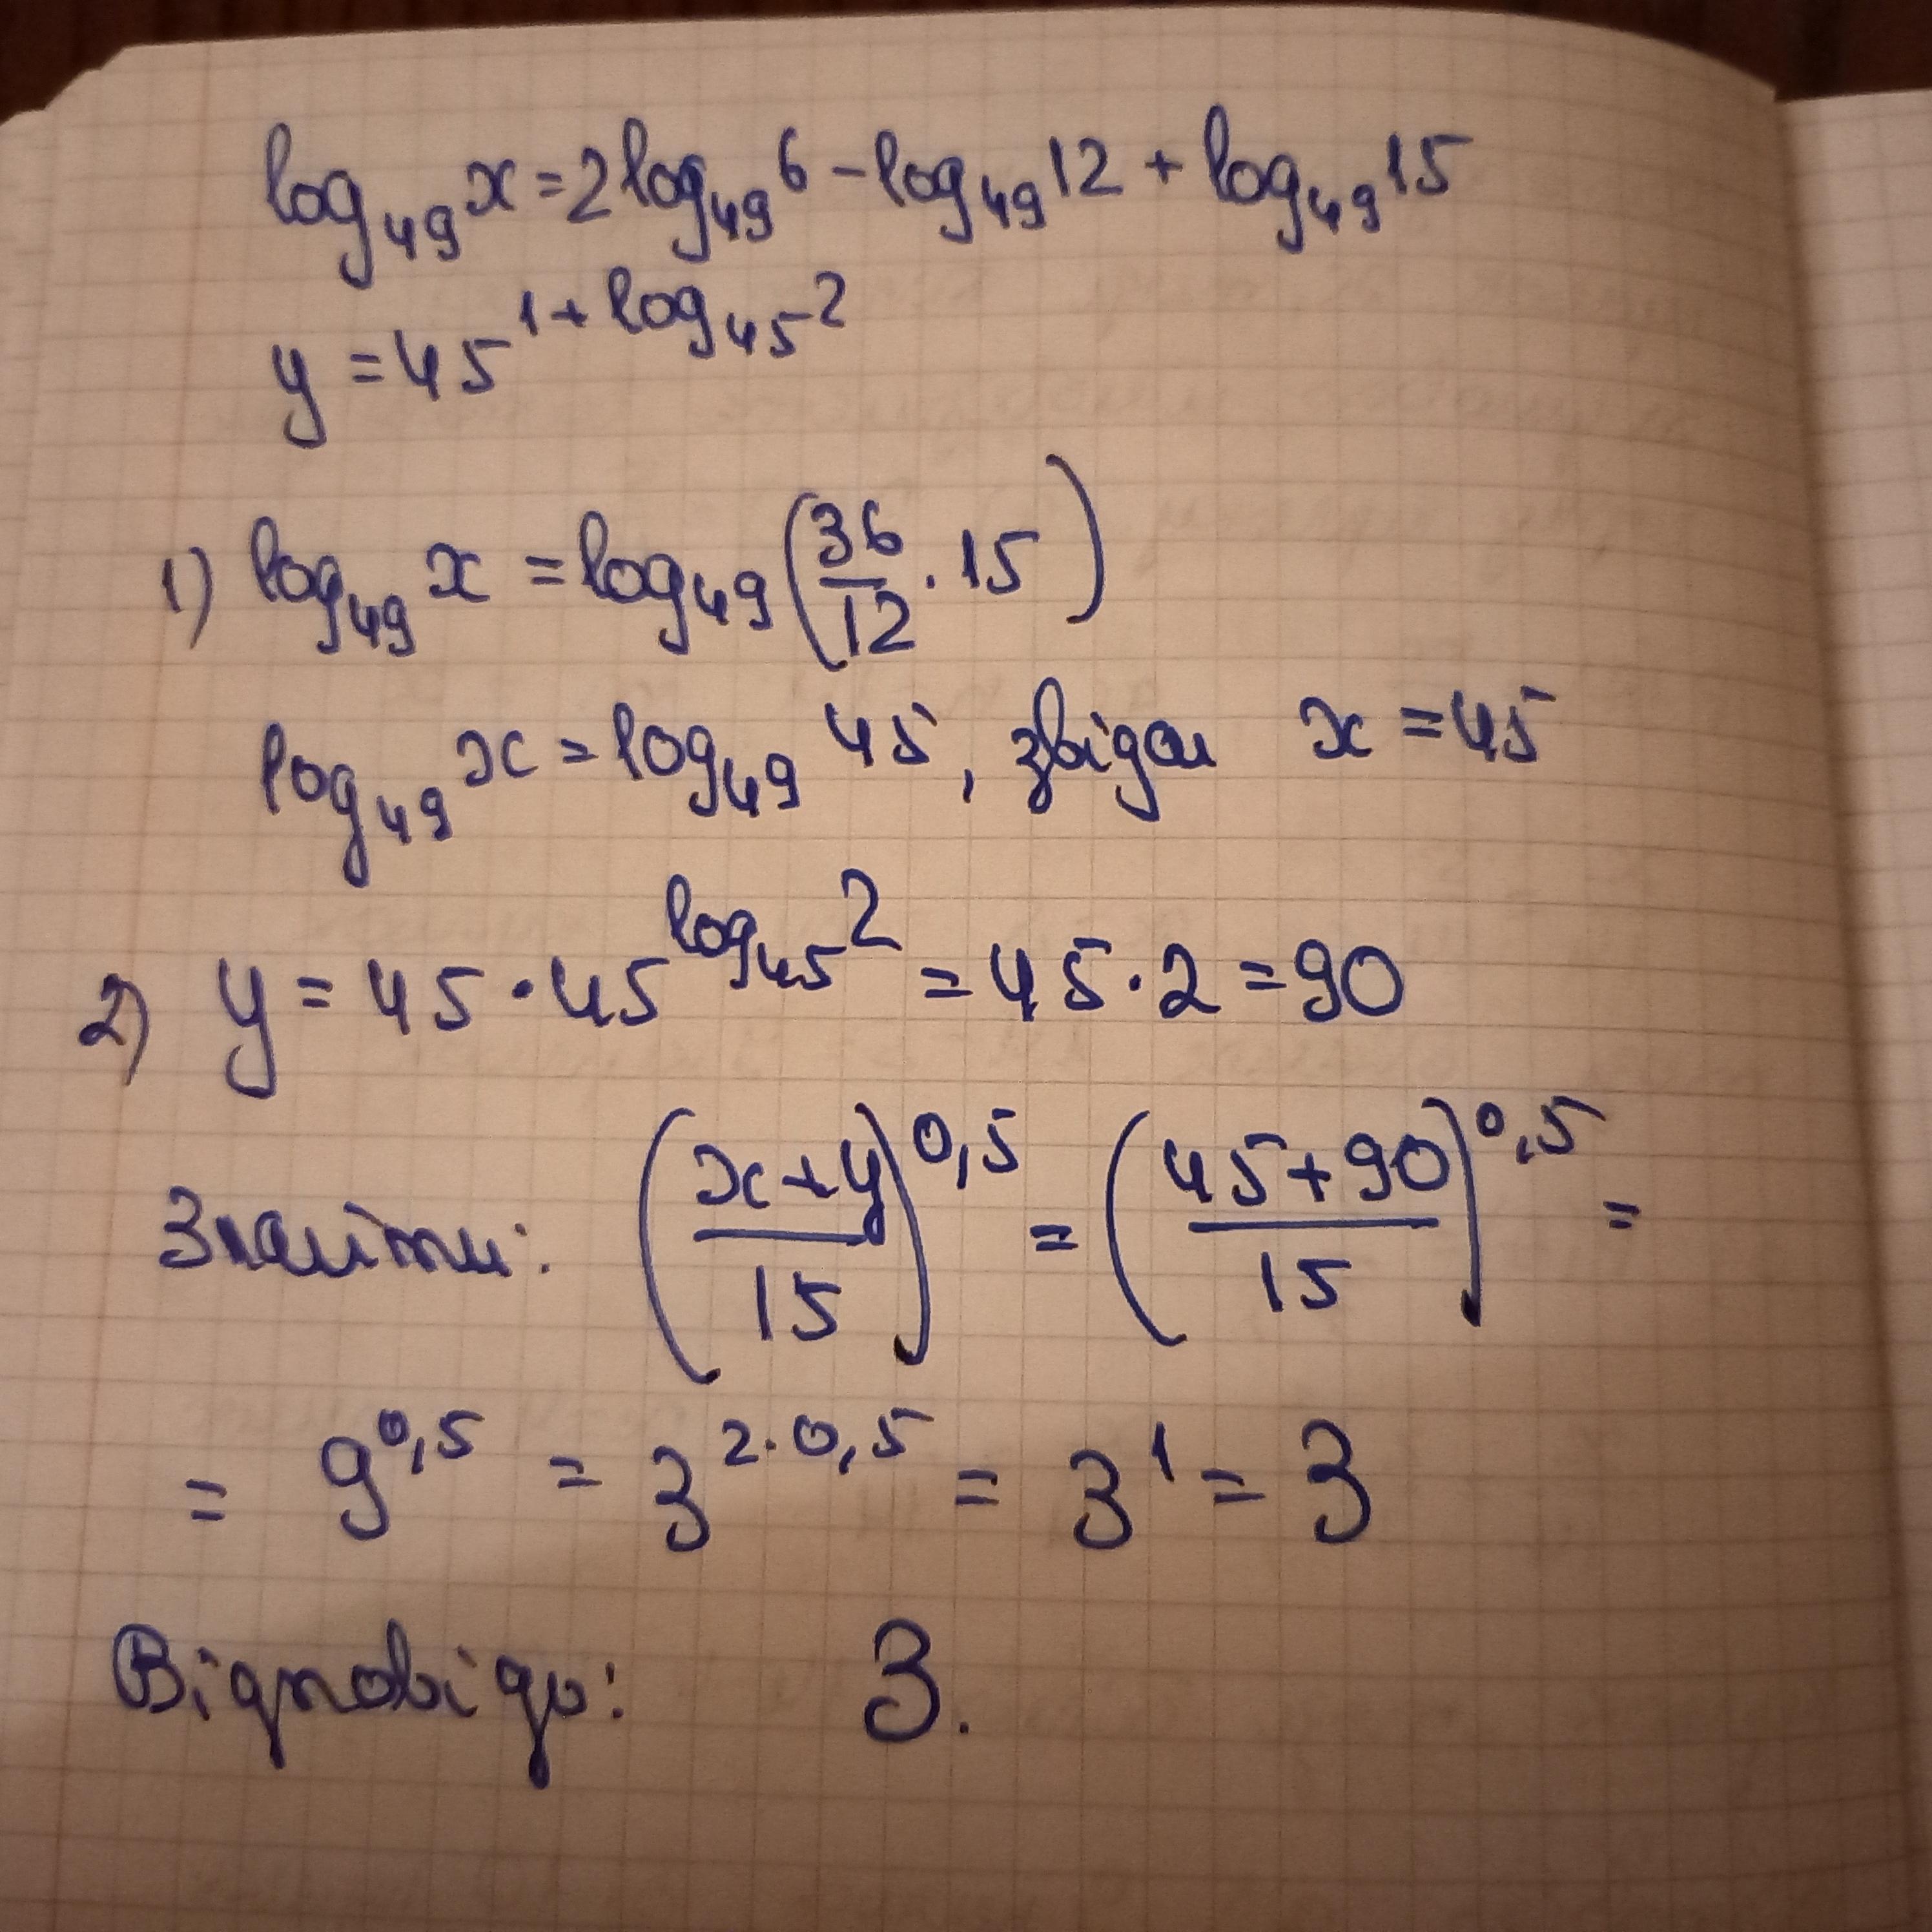 log₄₉x = 2log₄₉6 - log₄₉12 + log₄₉15
y = 45^(1 + log₄₅2)
1) log₄₉x = log₄₉(36/12 · 15)
log₄₉x = log₄₉45, звідси x = 45
2) y = 45 · 45^(log₄₅2) = 45 · 2 = 90
Знайти: ((x+y)/15)^(0,5) = ((45+90)/15)^(0,5) =
= 9^(0,5) = 3^(2·0,5) = 3^1 = 3
Відповідь: 3.